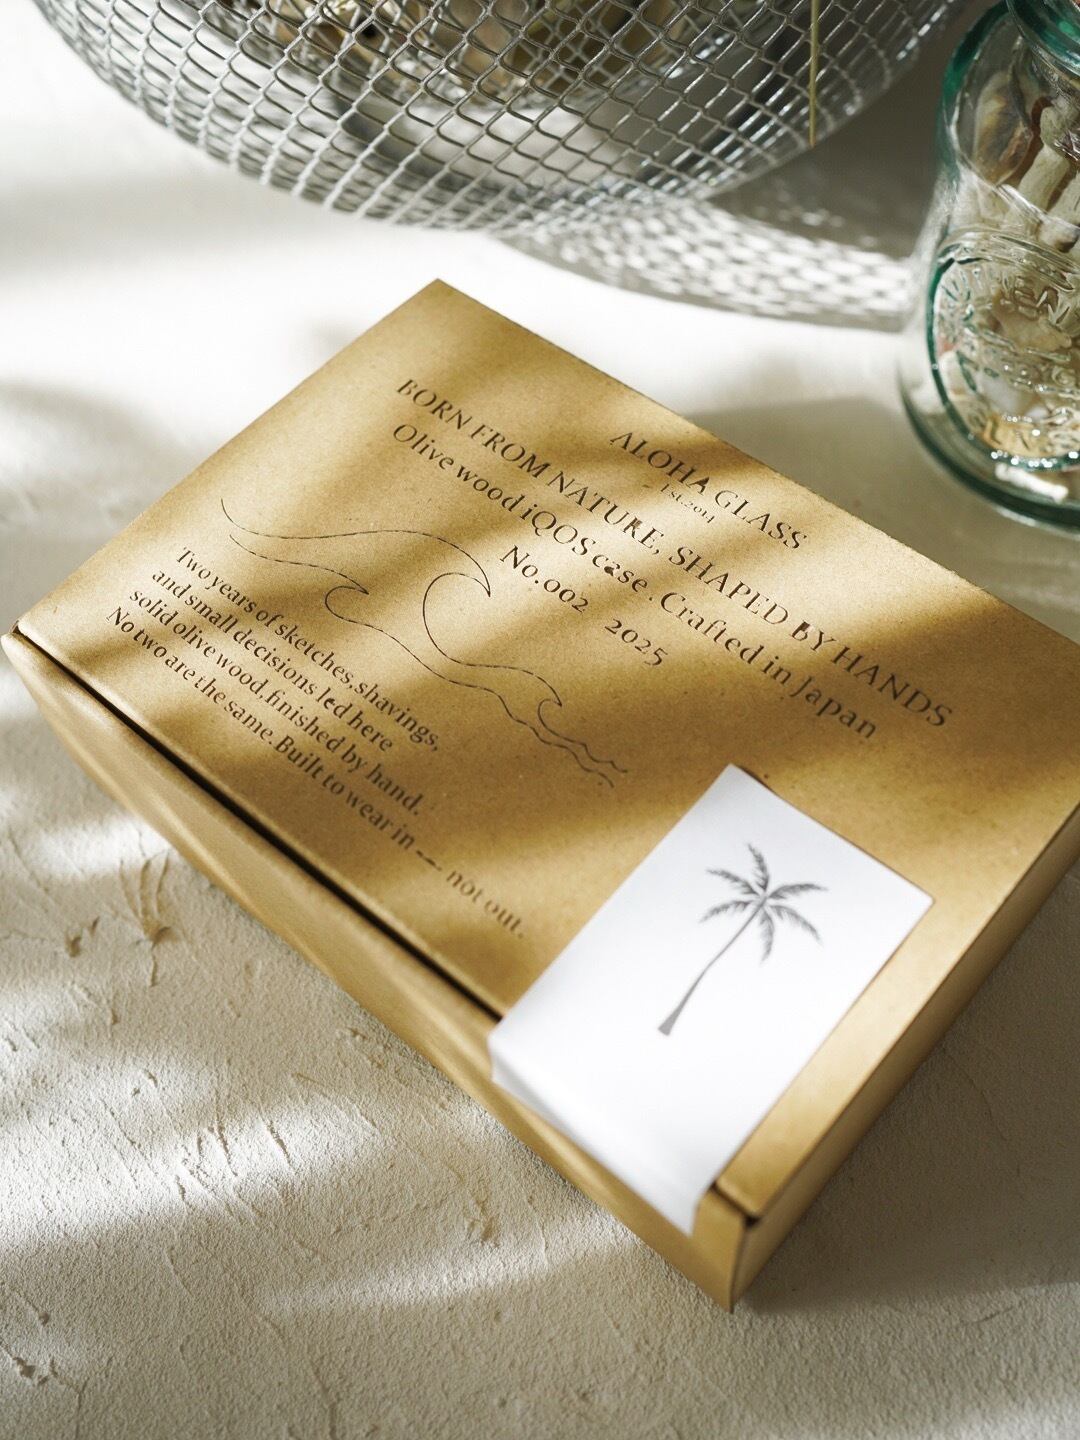 ALOHA GLASS
Est.2014
BORN FROM NATURE, SHAPED BY HANDS
Olive wood iQOS case . Crafted in Japan
No.002 2025
Two years of sketches, shavings,
and small decisions led here
solid olive wood, finished by hand.
No two are the same. Built to wear in — not out.